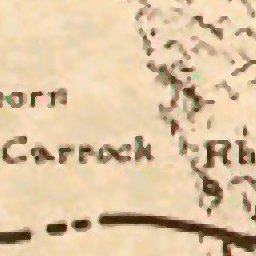 orn
Carrock Rh